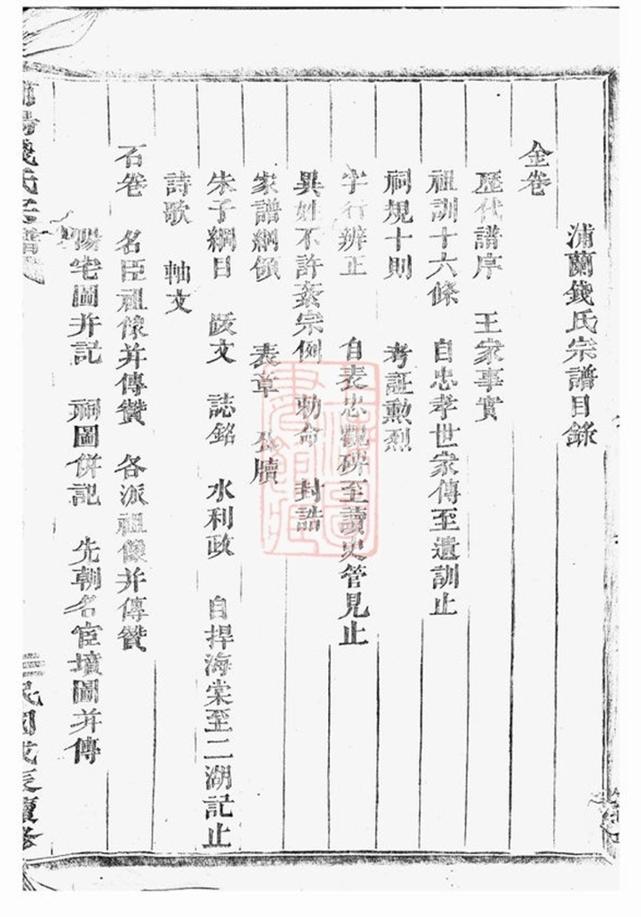 浦蘭錢氏宗譜目錄
金卷
歷代譜序 王家事實
祖訓十六條 自忠孝世家傳至遺訓止
祠規十則 考証勲烈
字行辨正 自表忠觀碑至讀史管見止
異姓不許紊宗例 勅命 封誥
家譜綱領 表章 公牘
朱子綱目 跋文 誌銘 水利政 自捍海棠至二湖記止
詩歌 軸文
石卷 名臣祖像并傳贊 各派祖像并傳贊
陽宅圖并記 祠圖併記 先朝名宦墳圖并傳
錢氏宗譜
民國戊辰續修